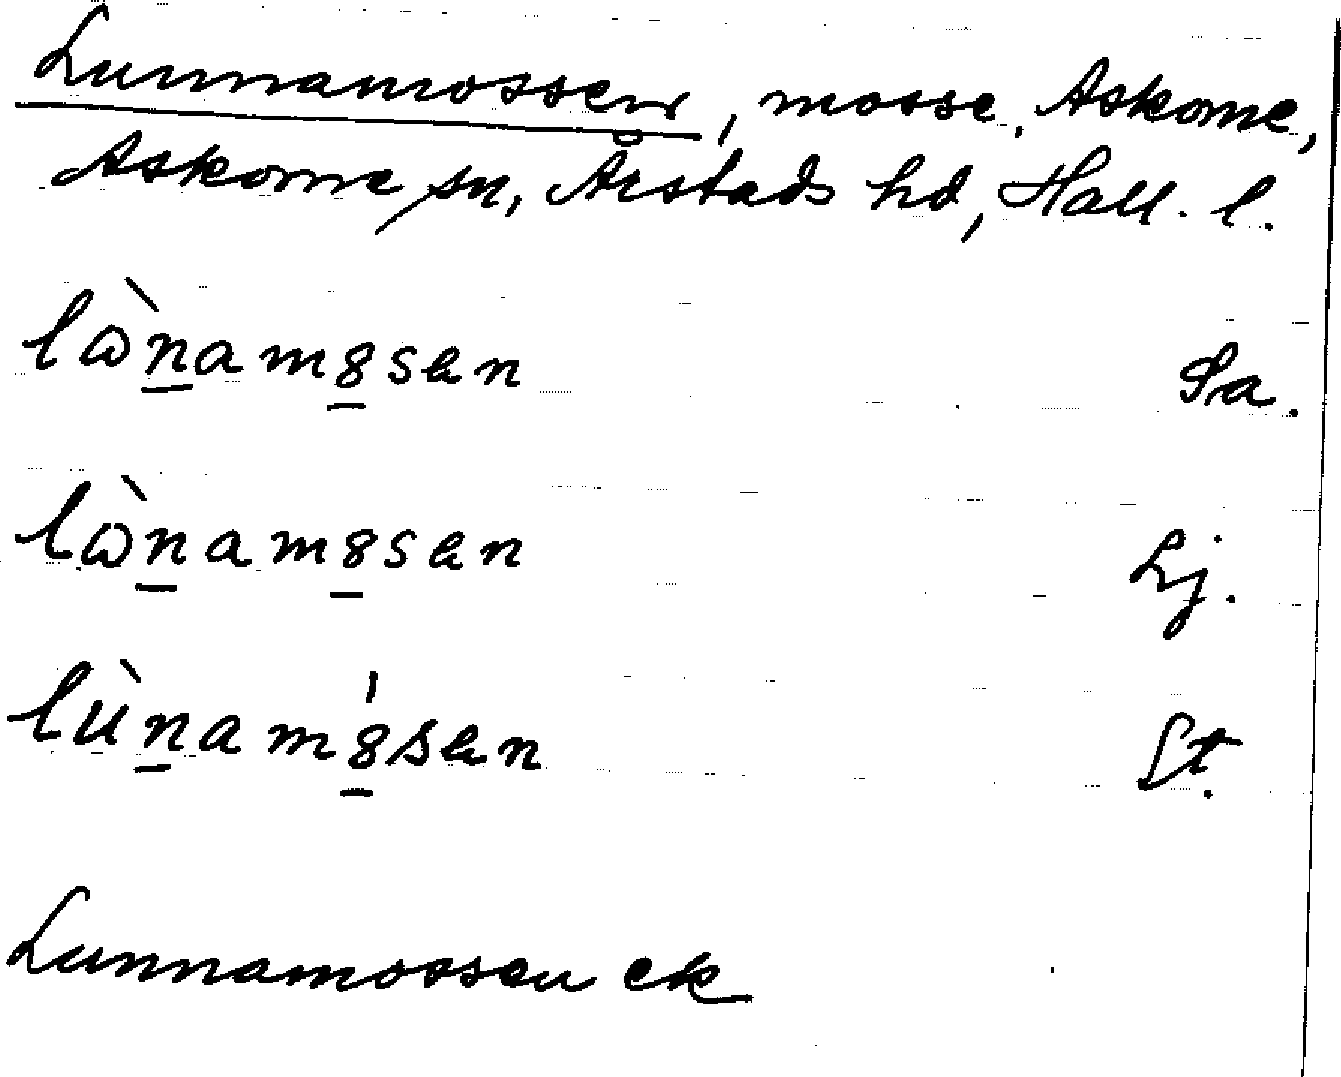 Lunnamossen, mosse, Askome,
Askome sn, Årstads hd, Hall. l.
lὼn̲am8̲sen Sa.
lὼn̲am8̲sen Lj.
lùn̲am8̲́sen St.
Lunnamossen ek